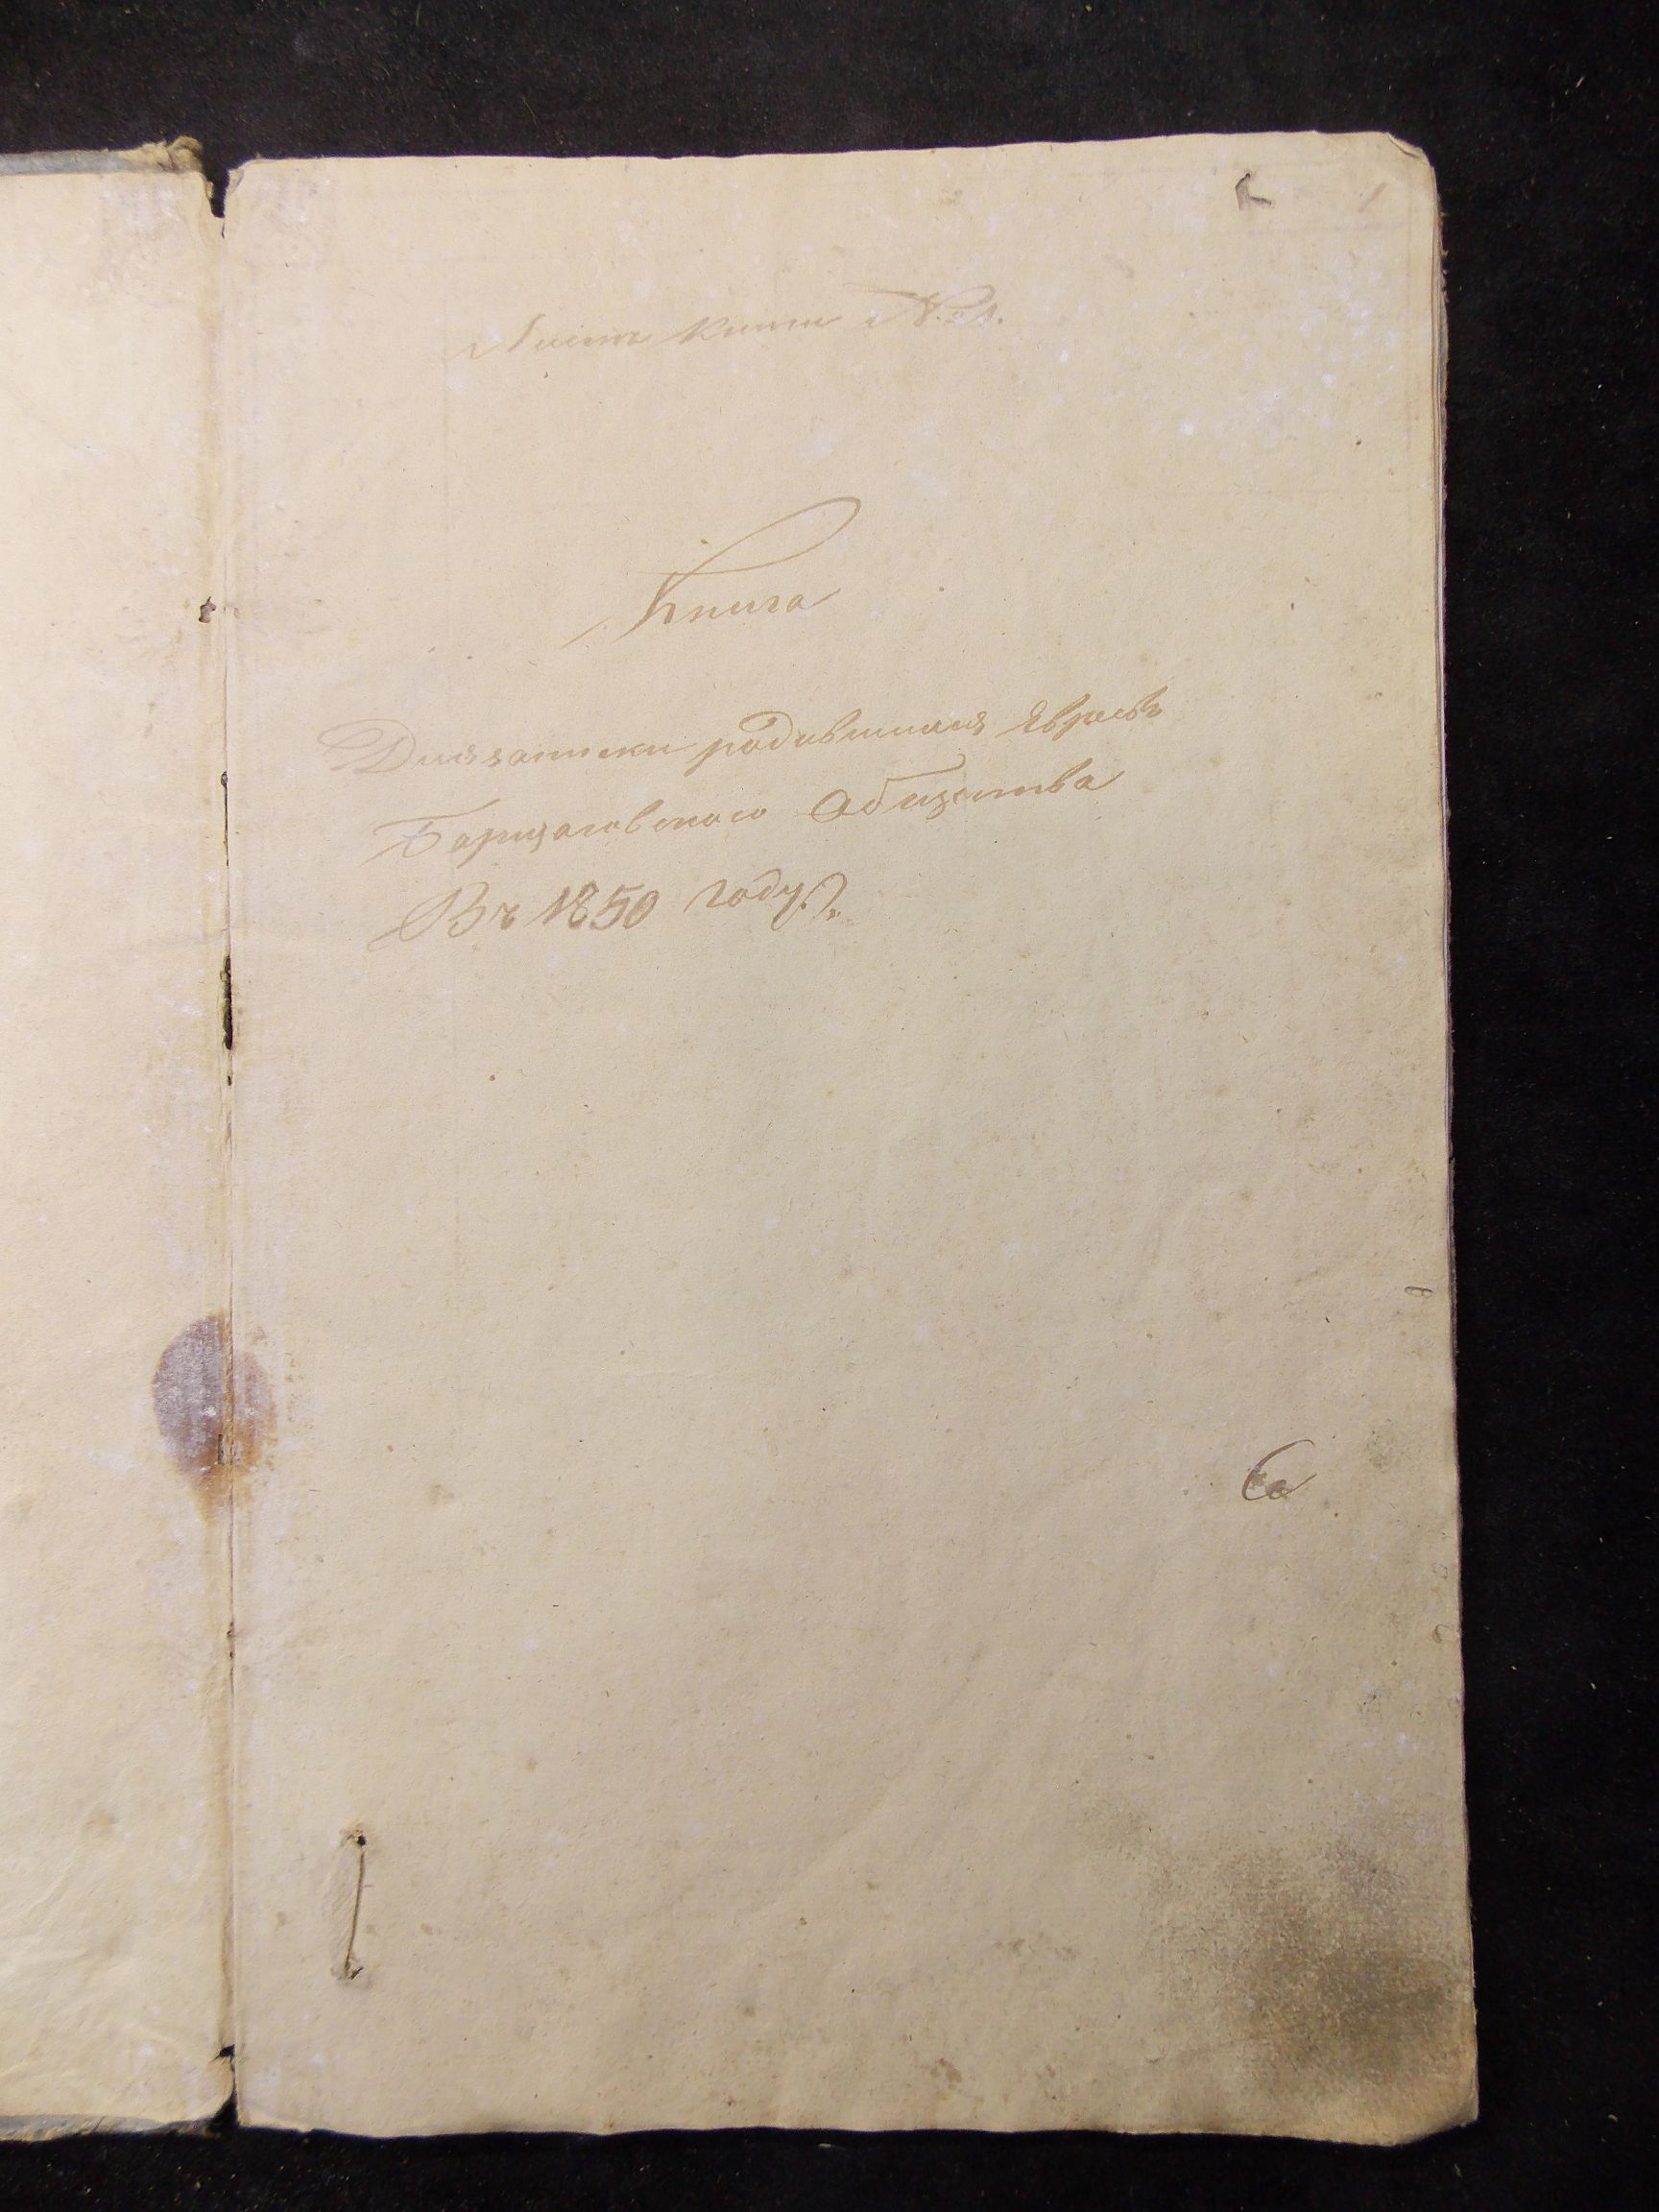 1
Листъ книги №1.
Книга
Для записки родившихся Евреевъ
Борщаговскаго Общества
Въ 1850 году.